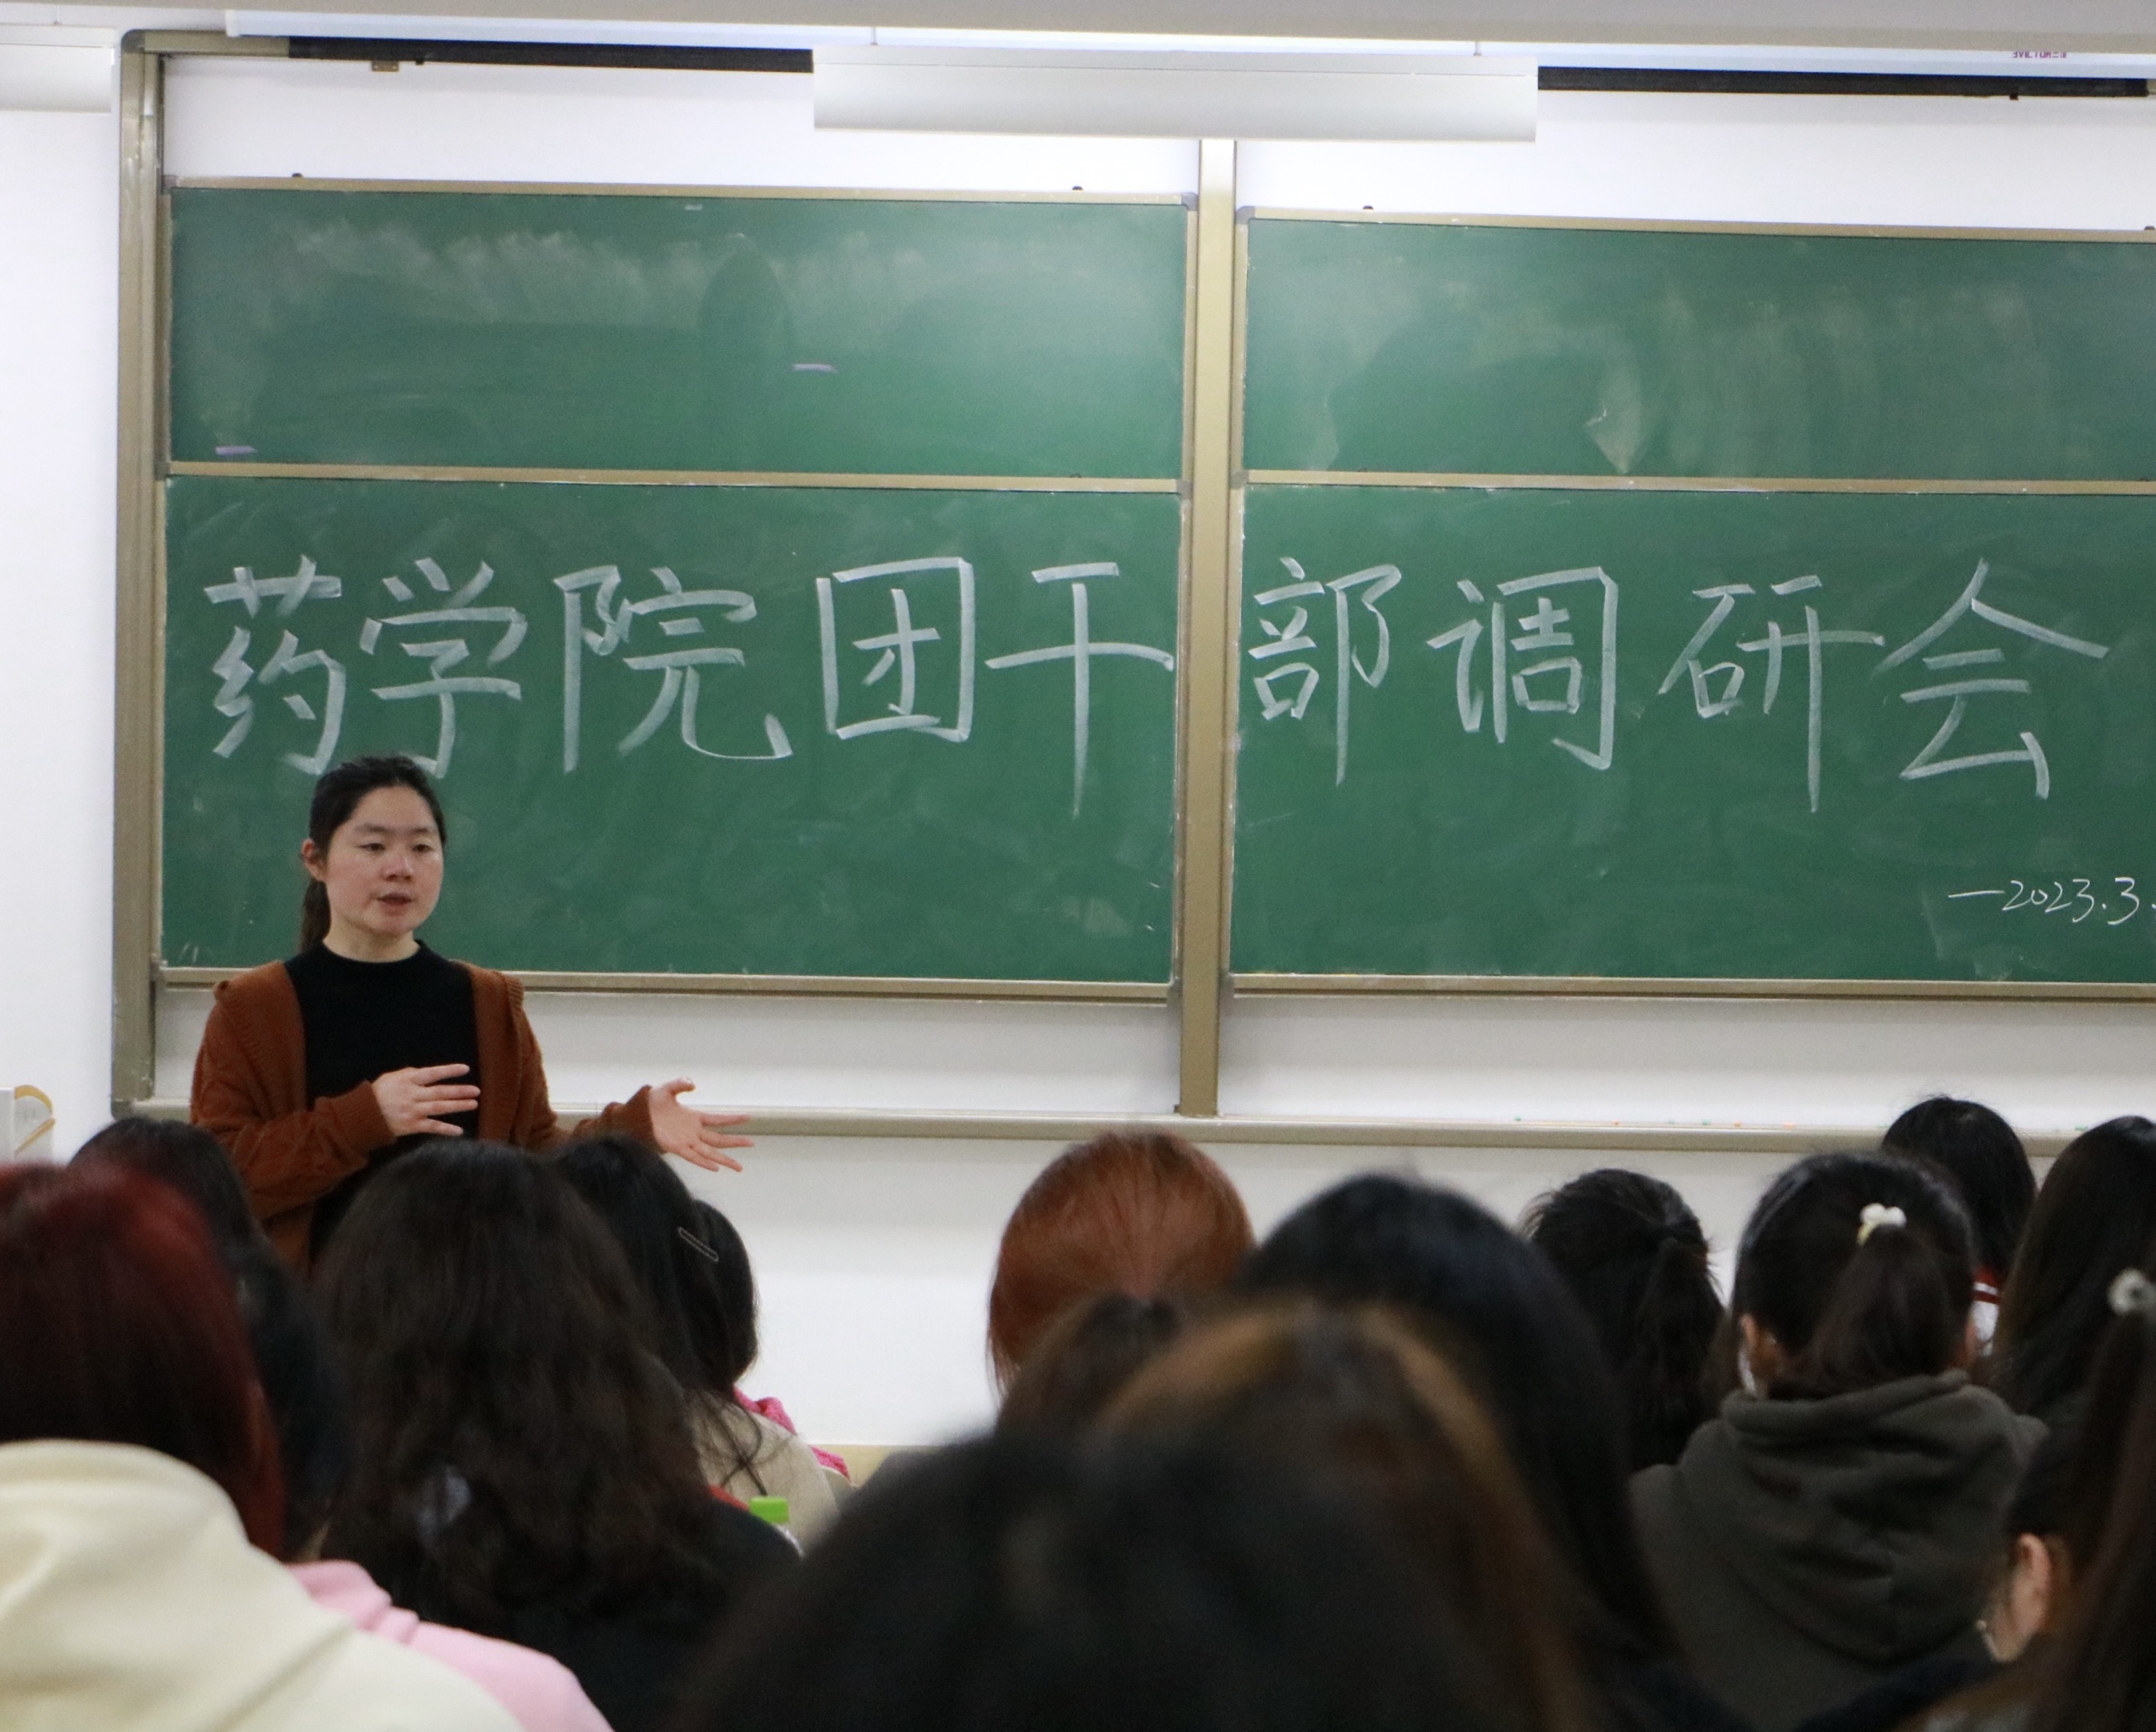 药学院团干部调研会
—2023.3.